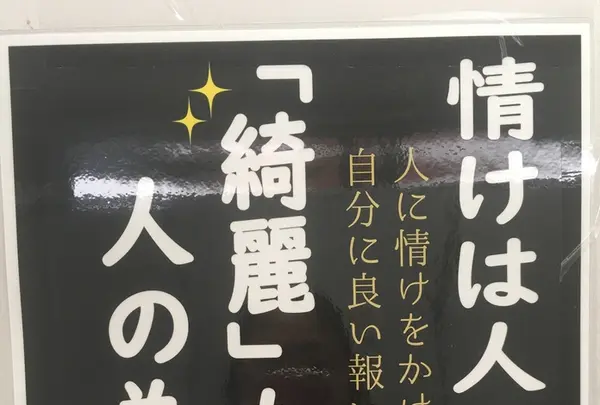 情けは人
人に情けをかけ
自分に良い報い
「綺麗」
人の